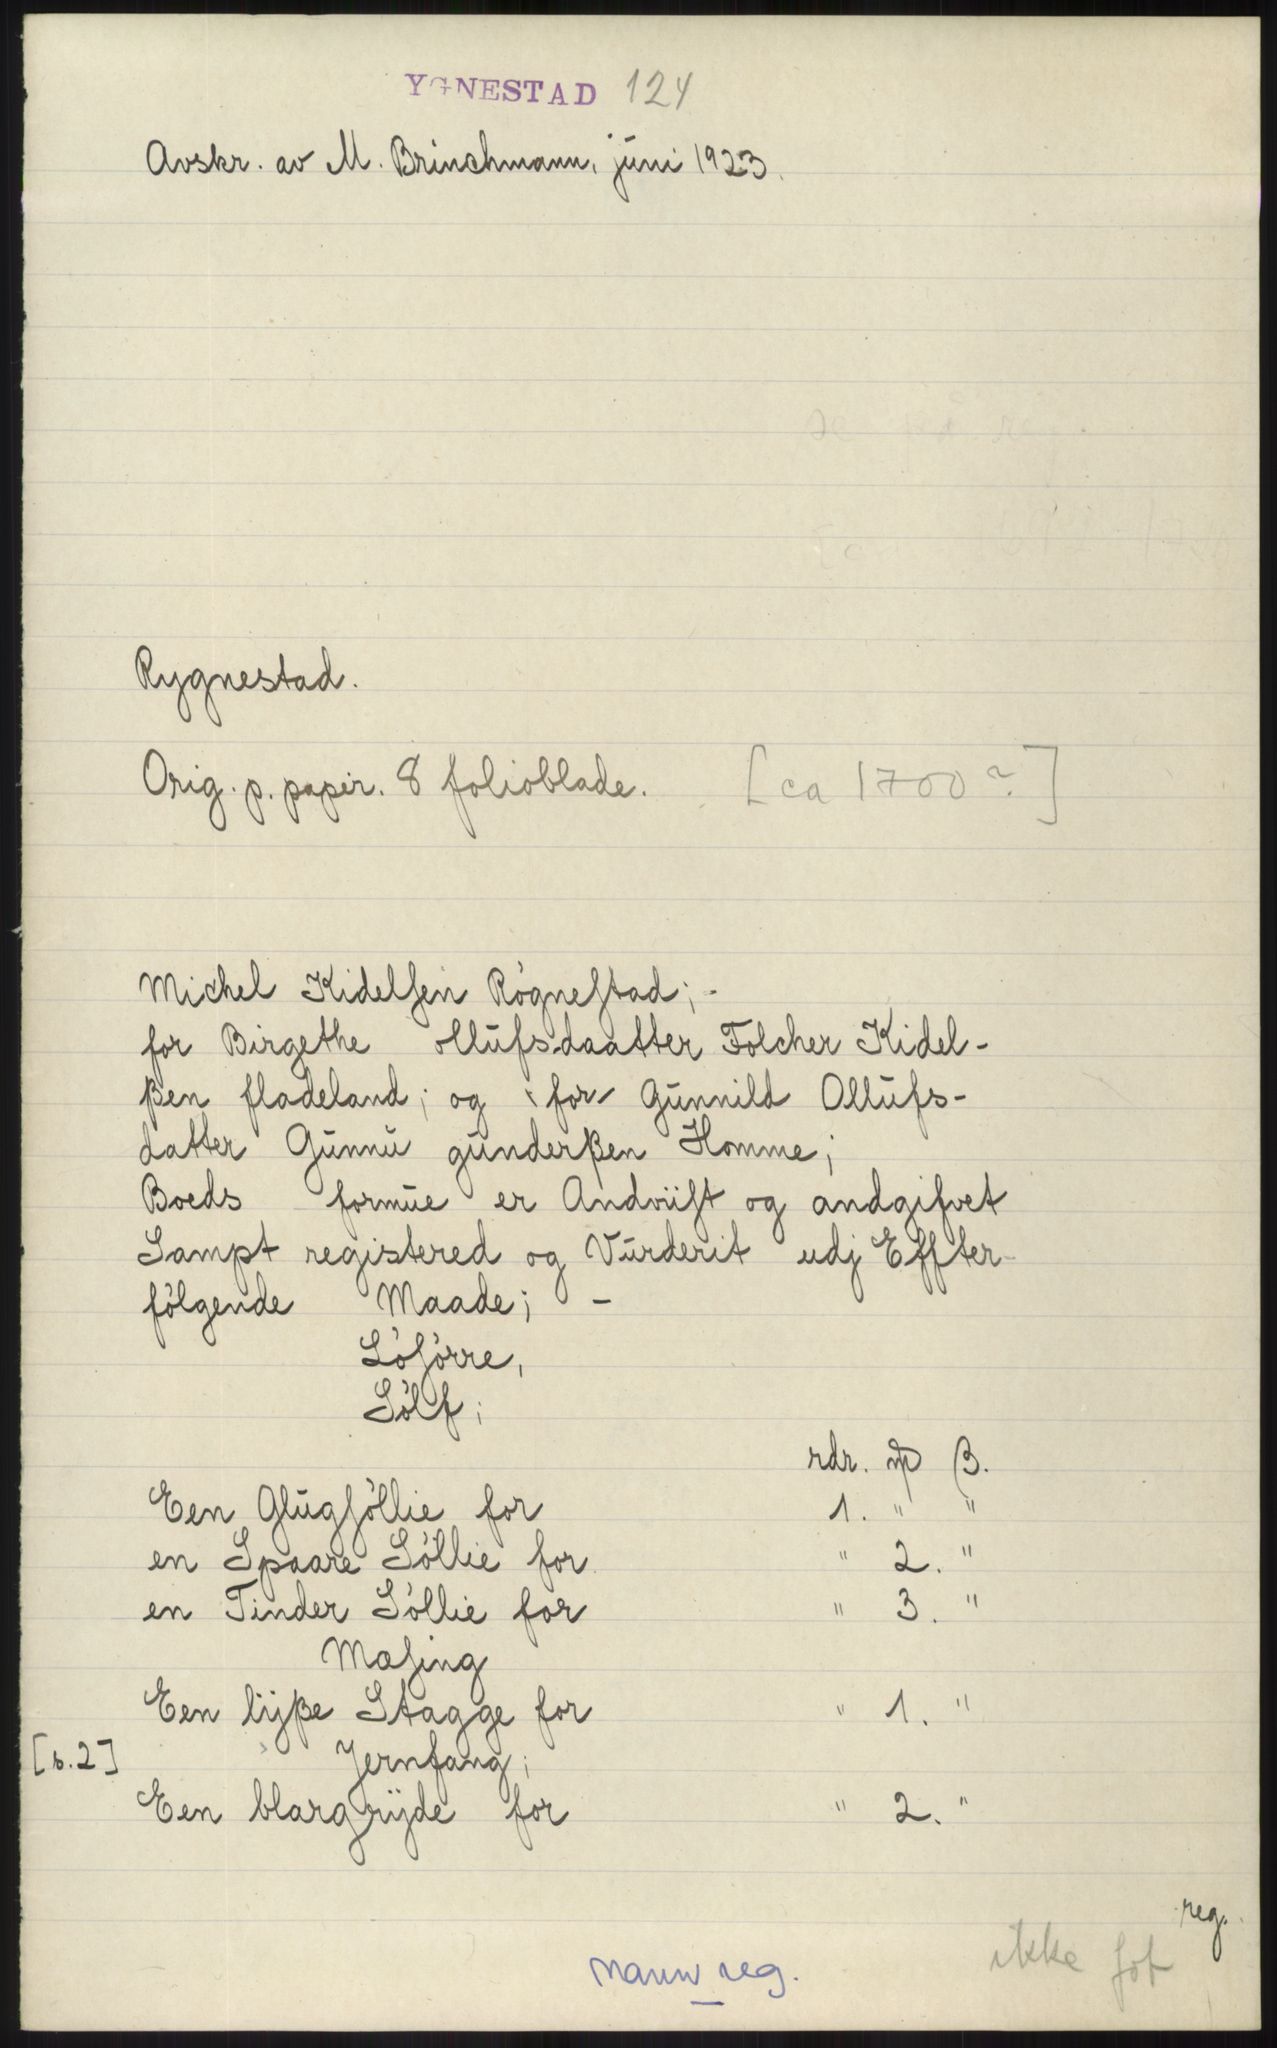 YGNESTAD 124
Avskr. av M. Brinchmann, juni 1923.
Rygnestad.
Orig. p. papir. 8 folioblade. [ca 1700?]
Michel Kidelsen Røgnestad; -
for Birgethe ollufsdaatter Folcher Kidel-
ßen fladeland; og for Gunnild Ollufs-
datter Gunnu gunderßen Homme;
Boeds formue er Andviist og andgifvet
Sampt registered og Vurderit udj Effter
følgende Maade; -
Løsørre,
Sølf;
rdr. mp β.
Een Glugsøllie for 1. " "
en Spaare Søllie for " 2. "
en Tinder Søllie for " 3. "
Mæsing
Een lyße Stagge for " 1. "
[s. 2] Jernfang;
Een blargryde for " 2. "
reg.
ikke fot
navnereg.